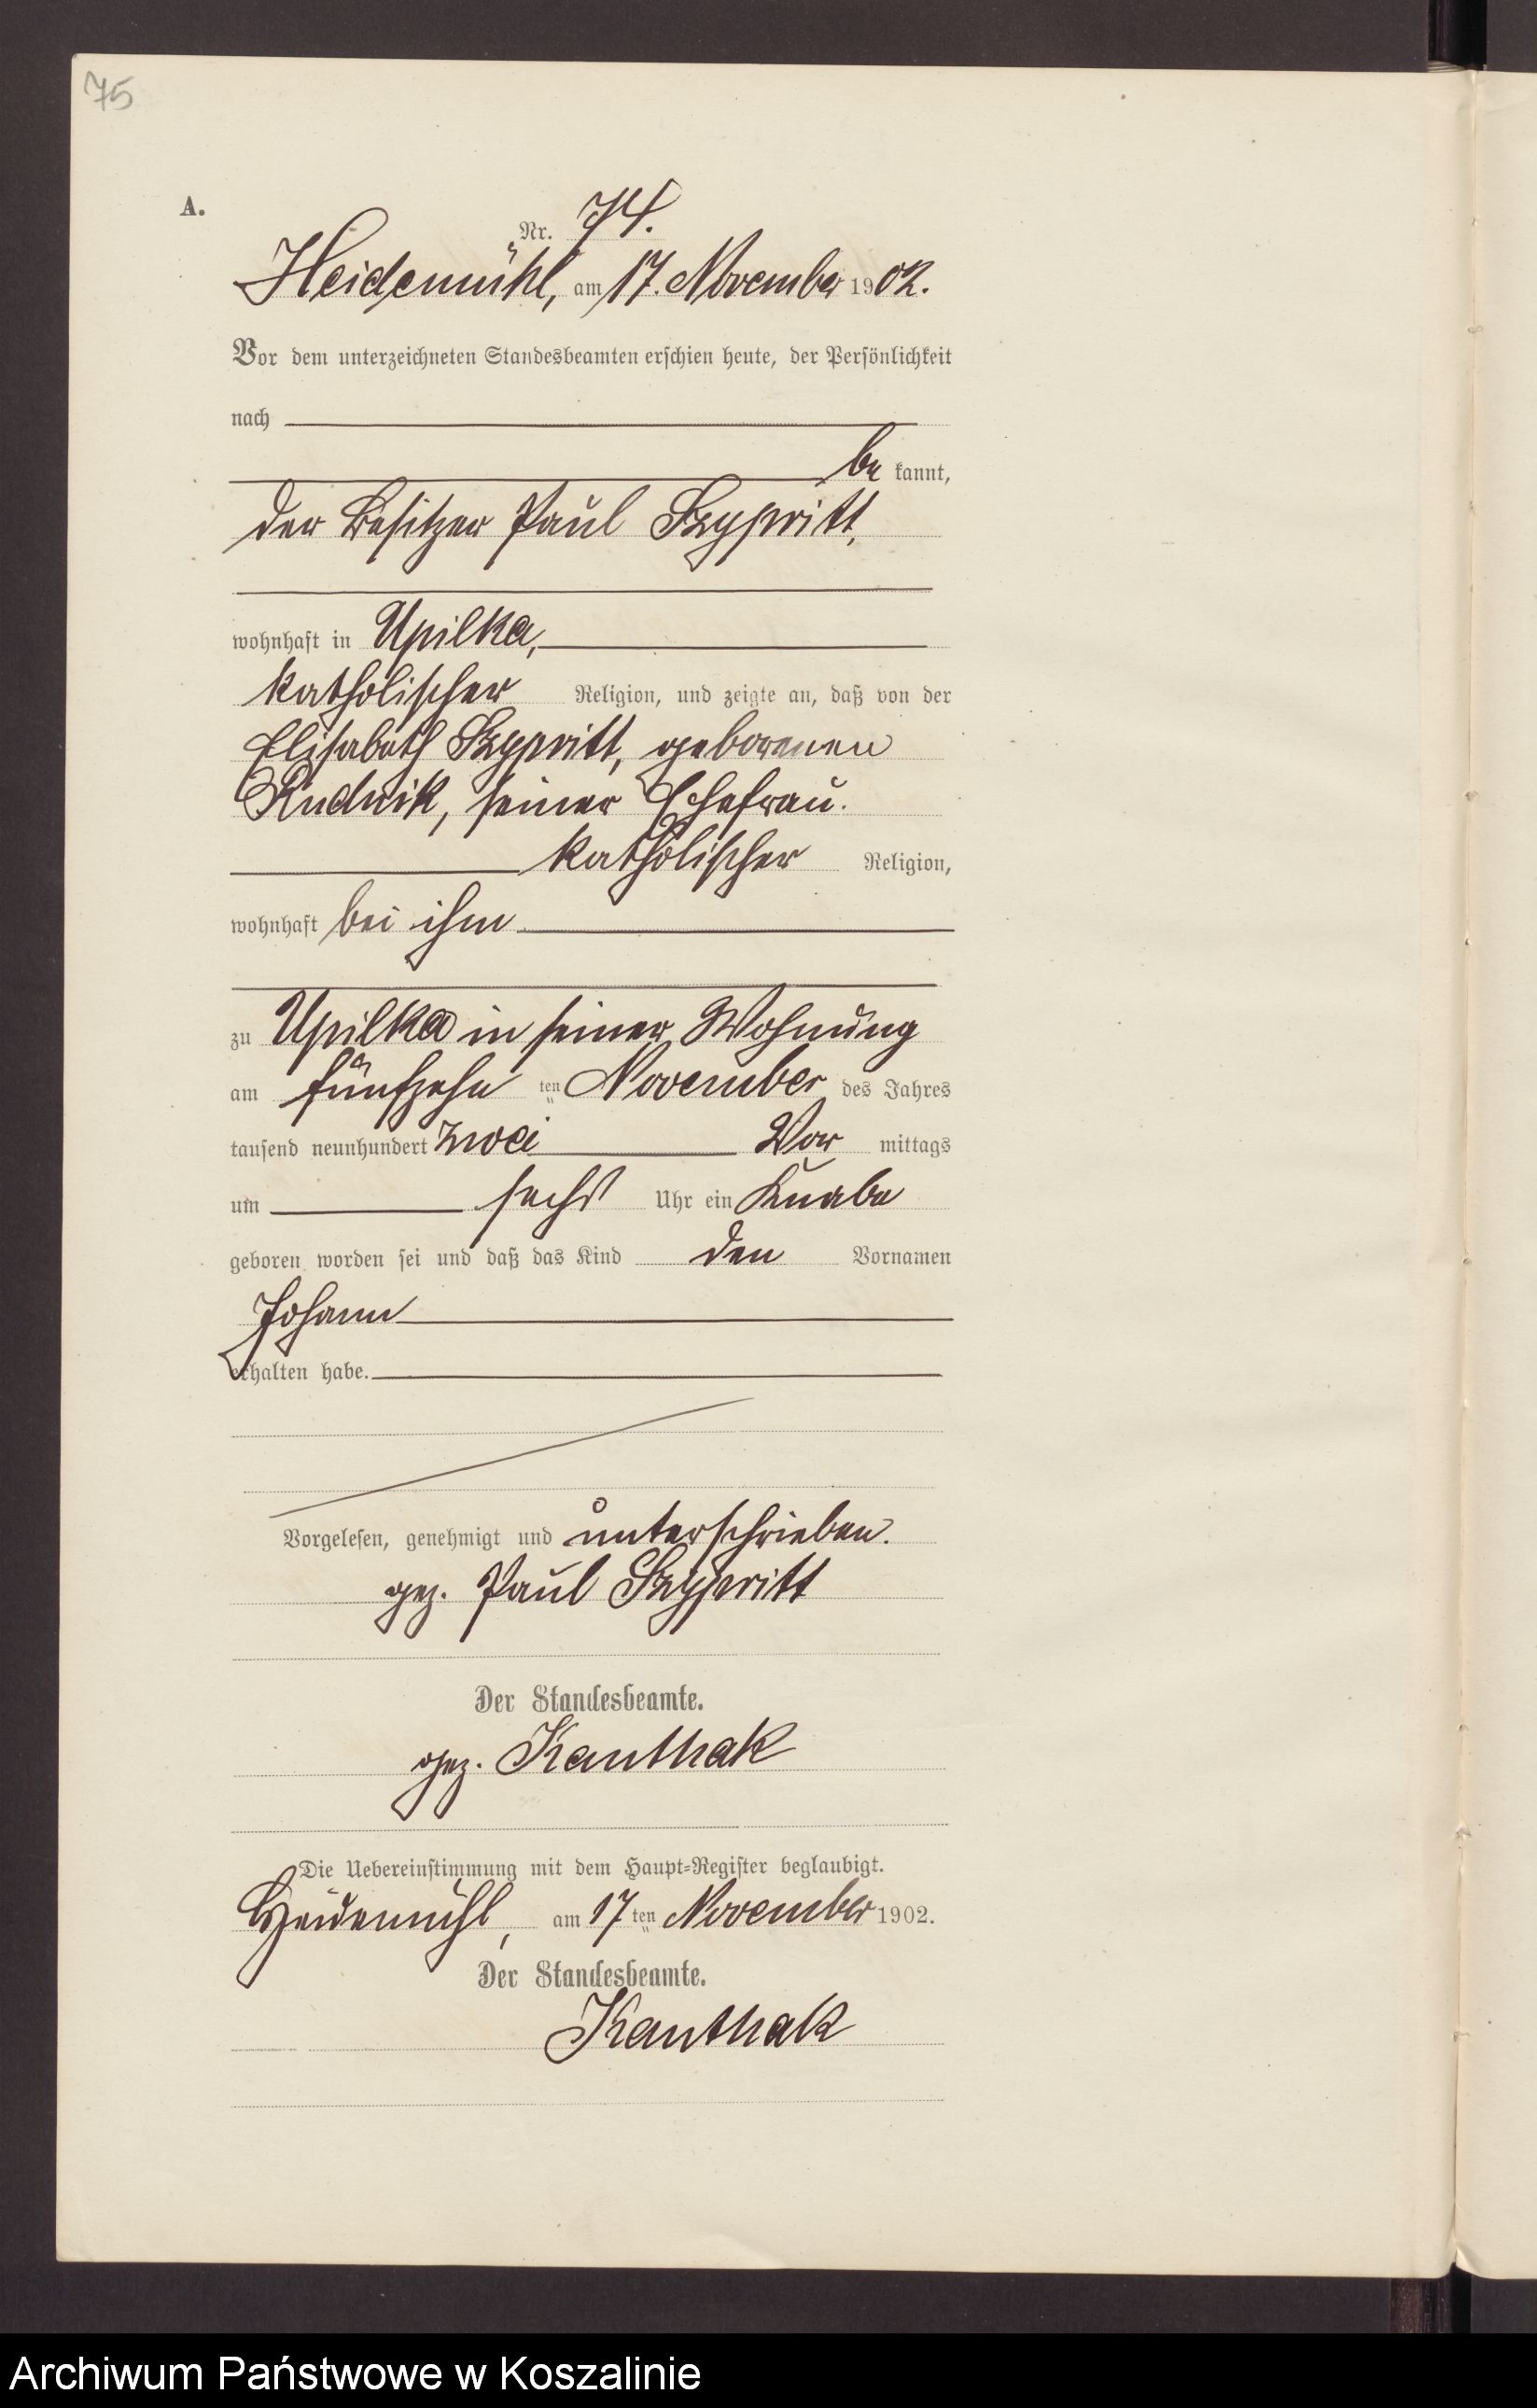 75
A.
Nr. 74.
Heidemühl, am 17. November 1902.
Vor dem unterzeichneten Standesbeamten erschien heute, der Persönlichkeit
nach
be kannt,
der Besitzer Paul Szypritt,
wohnhaft in Upilka,
katholischer Religion, und zeigte an, daß von der
Elisabeth Szypritt, geborenen
Rudnik, seiner Ehefrau.
katholischer Religion,
wohnhaft bei ihm
zu Upilka in seiner Wohnung
am fünfzehn ten November des Jahres
tausend neunhundert zwei Vor mittags
um sechs Uhr ein Knabe
geboren worden sei und daß das Kind den Vornamen
Johann
erhalten habe.
Vorgelesen, genehmigt und unterschrieben.
gez. Paul Szypritt
Der Standesbeamte.
gez. Kanthak
Die Uebereinstimmung mit dem Haupt-Register beglaubigt.
Heidemühl, am 17 ten November 1902.
Der Standesbeamte.
Kanthak
Archiwum Państwowe w Koszalinie